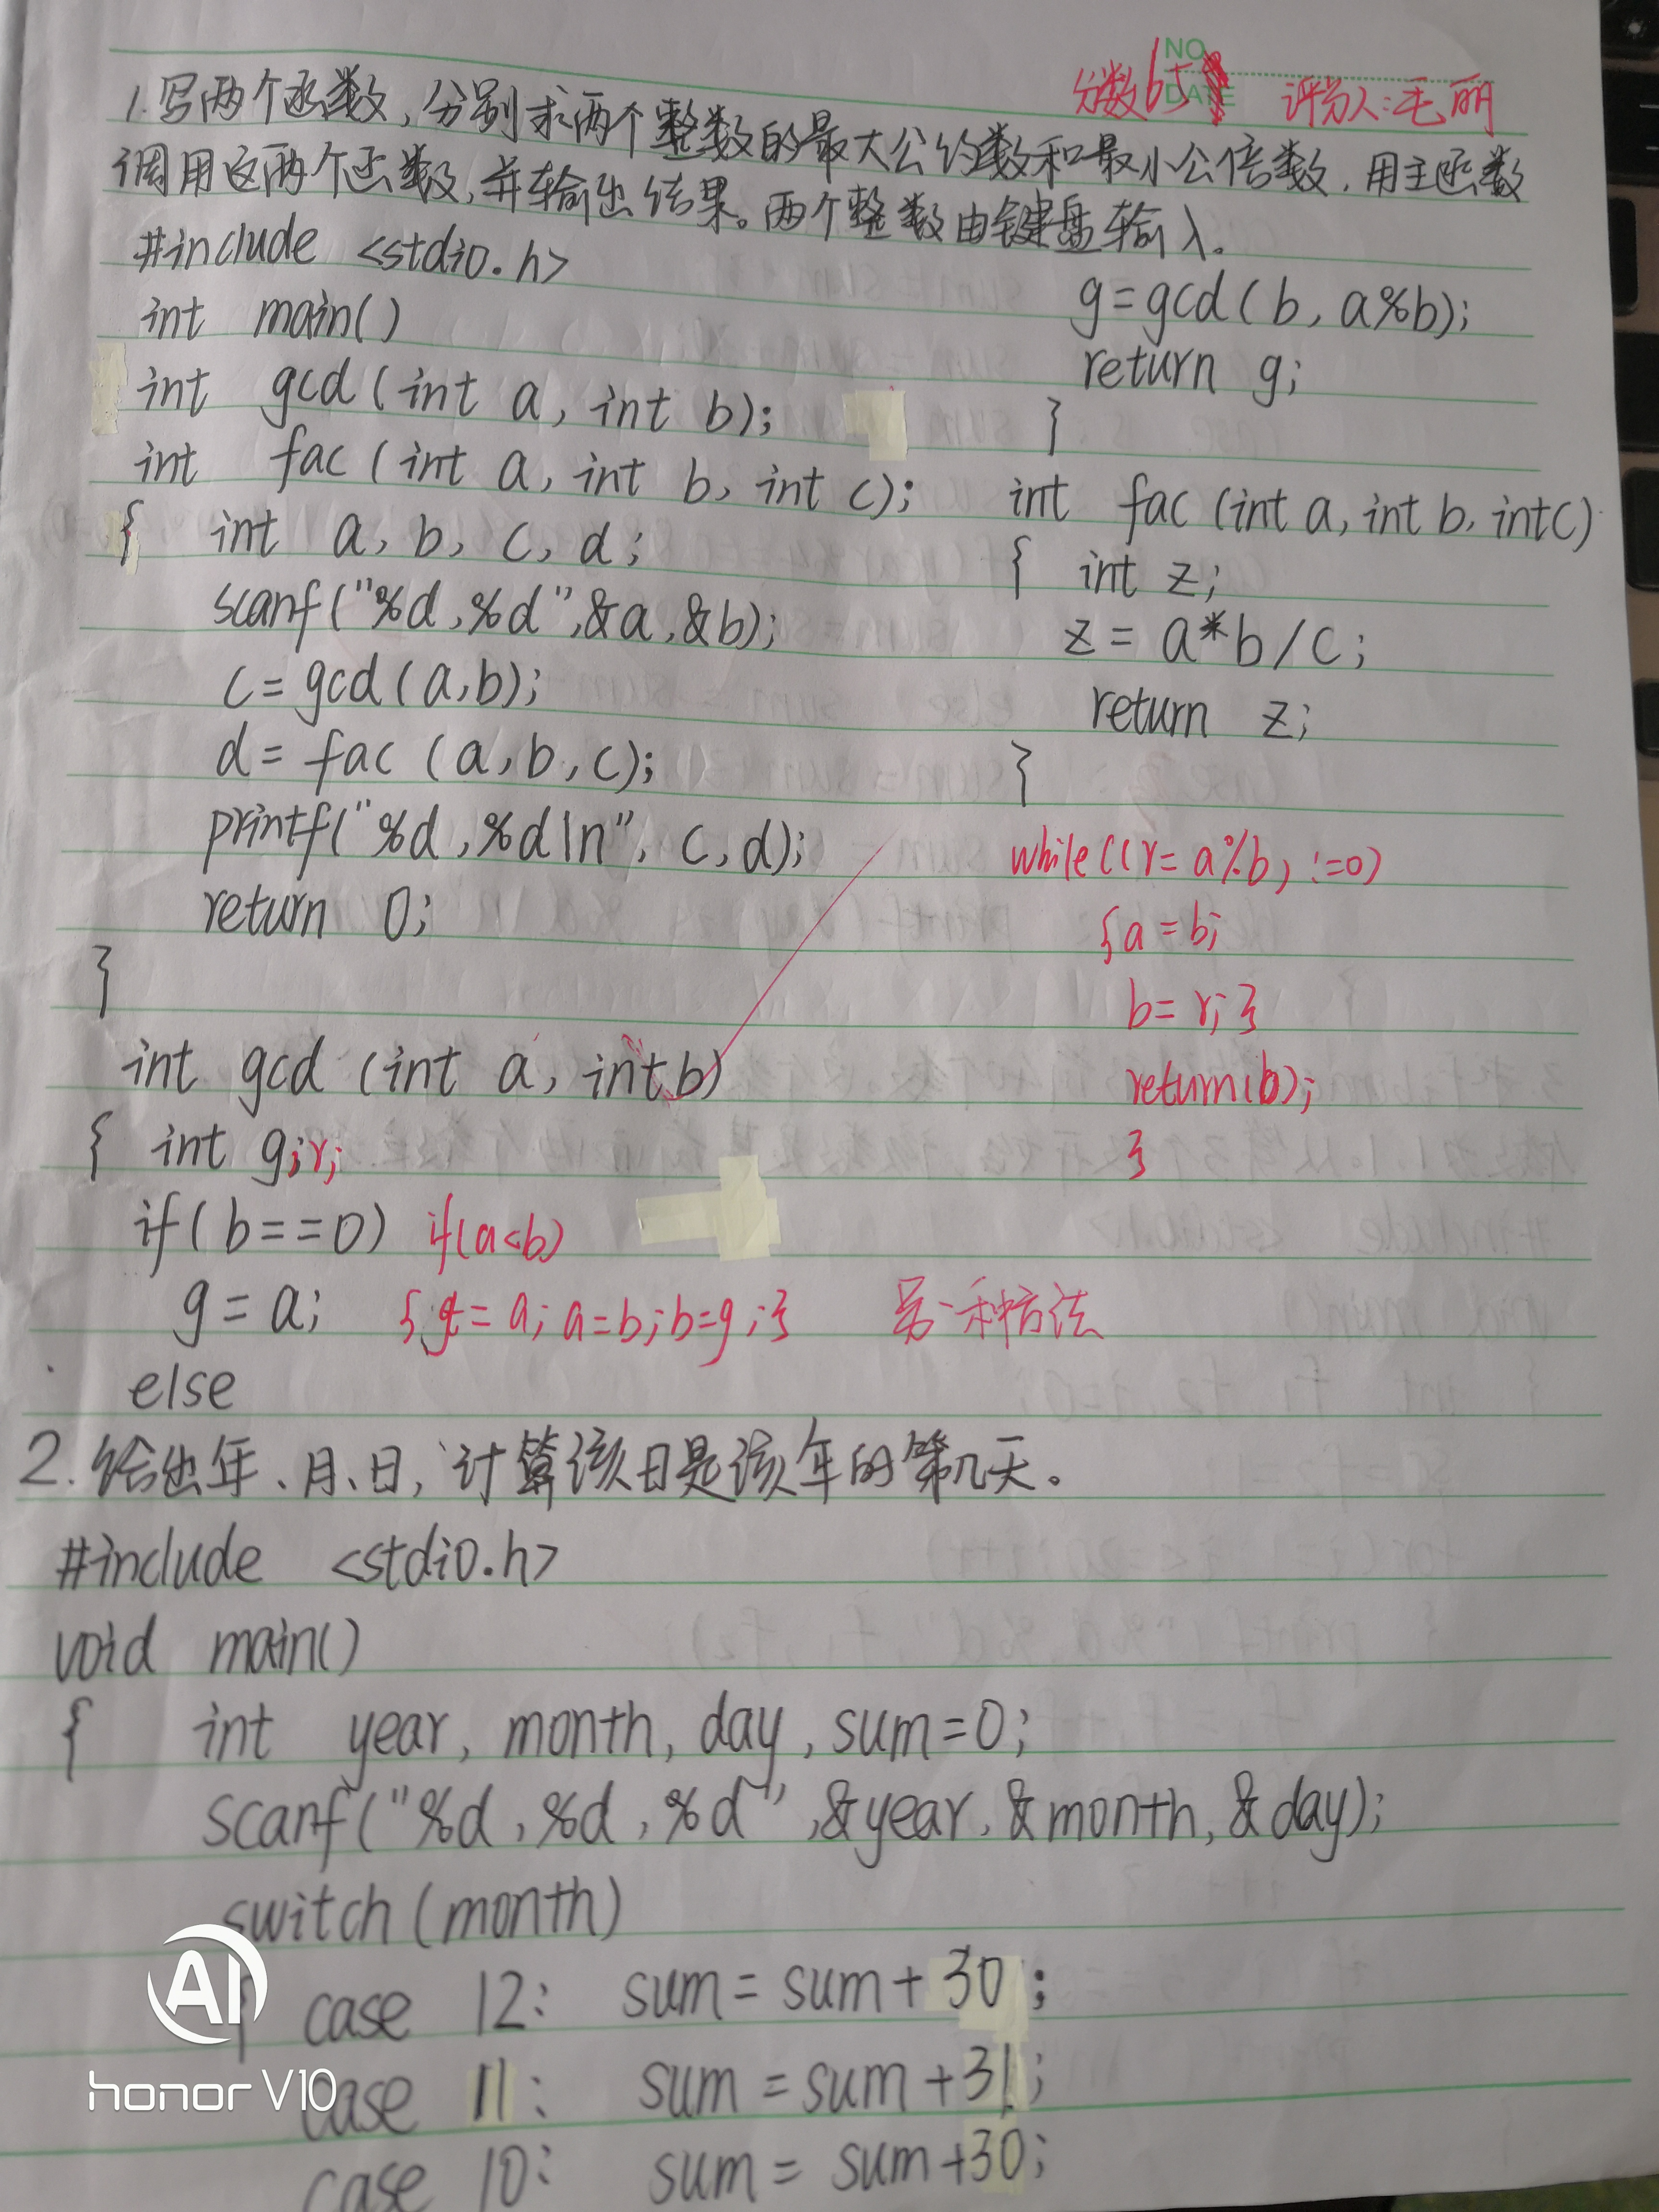 NO.
DATE
分数65 评分人:毛丽
1.写两个函数,分别求两个整数的最大公约数和最小公倍数,用主函数
调用这两个函数,并输出结果。两个整数由键盘输入。
#include <stdio.h>
int main()
int gcd(int a, int b);
int fac(int a, int b, int c);
{ int a, b, c, d;
scanf("%d,%d",&a,&b);
c=gcd(a,b);
d=fac(a,b,c);
printf("%d,%d\n", c,d);
return 0;
}
int gcd (int a, int b)
{ int g;r;
if(b==0) if(a<b)
g=a; {g=a;a=b;b=g;} 另一种方法
else
g=gcd(b, a%b);
return g;
}
int fac(int a,int b,intc)
{ int z;
z=a*b/c;
return z;
}
while((r=a%b)!=0)
{a=b;
b=r;}
return(b);
}
2.给出年、月、日,计算该日是该年的第几天。
#include <stdio.h>
void main()
{ int year, month, day, sum=0;
scanf("%d,%d,%d",&year,&month,&day);
switch(month)
{ case 12: sum=sum+30;
case 11: sum=sum+31;
case 10: sum=sum+30;
AI
honor V10